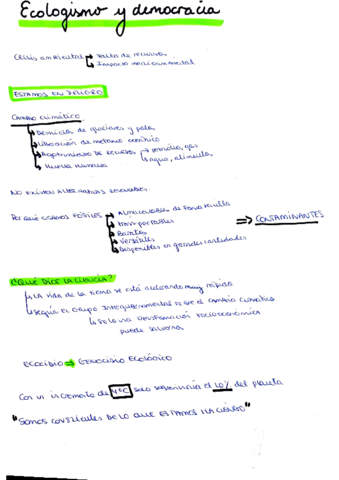 Ecologismo y democracia
Crisis ambiental → Falta de recursos
→ Impacto medioambiental
ESTAMOS EN PELIGRO
CAMBIO climático
→ Deshielo de glaciares y polos
→ Liberación de metano
→ Agotamiento de recursos → petróleo, gas
→ agua, alimentos,
→ Huella humana
NO EXISTEN ALTERNATIVAS
POR QUÉ USAMOS FÓSILES → Almacenables de forma sencilla
→ transportables
→ Baratos
→ versátiles
→ Disponibles en grandes cantidades
⇒ CONTAMINANTES
¿QUÉ DICE LA CIENCIA?
→ LA vida de la tierra se está acelerando muy rápido
→ Según el Grupo Intergubernamental sobre el cambio climático
→ Solo una transformación socioeconómica
puede salvarnos
ECOCIDIO ⇒ GENOCIDIO ECOLÓGICO
Con un incremento de 4ºC solo sobreviviría el 10% del planeta
"SOMOS CONSCIENTES DE LO QUE ESTAMOS HACIENDO"